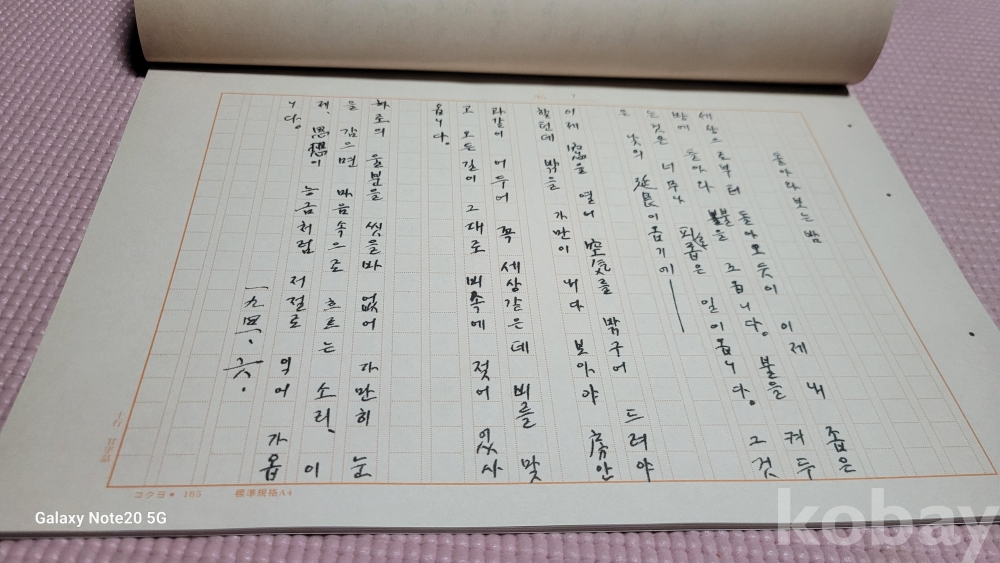 돌아와 보는 밤
세상으로부터 돌아오듯이 이제 내 좁은
방에 돌아와 불을 끄옵니다. 불을 켜두
는것은 너무나 피로롭은 일이옵니다. 그것
은 낮의 延長이옵기에——
이제 窓을 열어 空氣를 밖구어 드려야
할턴데 밖을 가만이 내다 보아야 房안
과같이 어두어 꼭 세상같은데 비를 맞
고 오든길이 그대로 비속에 젖어 있사
옵니다.
하로의 울분을 씻을바 없어 가만히 눈
을 감으면 마음속으로 흐르는 소리, 이
제, 思想이 능금처럼 저절로 익어 가옵
니다.
一九四一、六.
コクヨ 165 標準規格A4
Galaxy Note20 5G
kobay